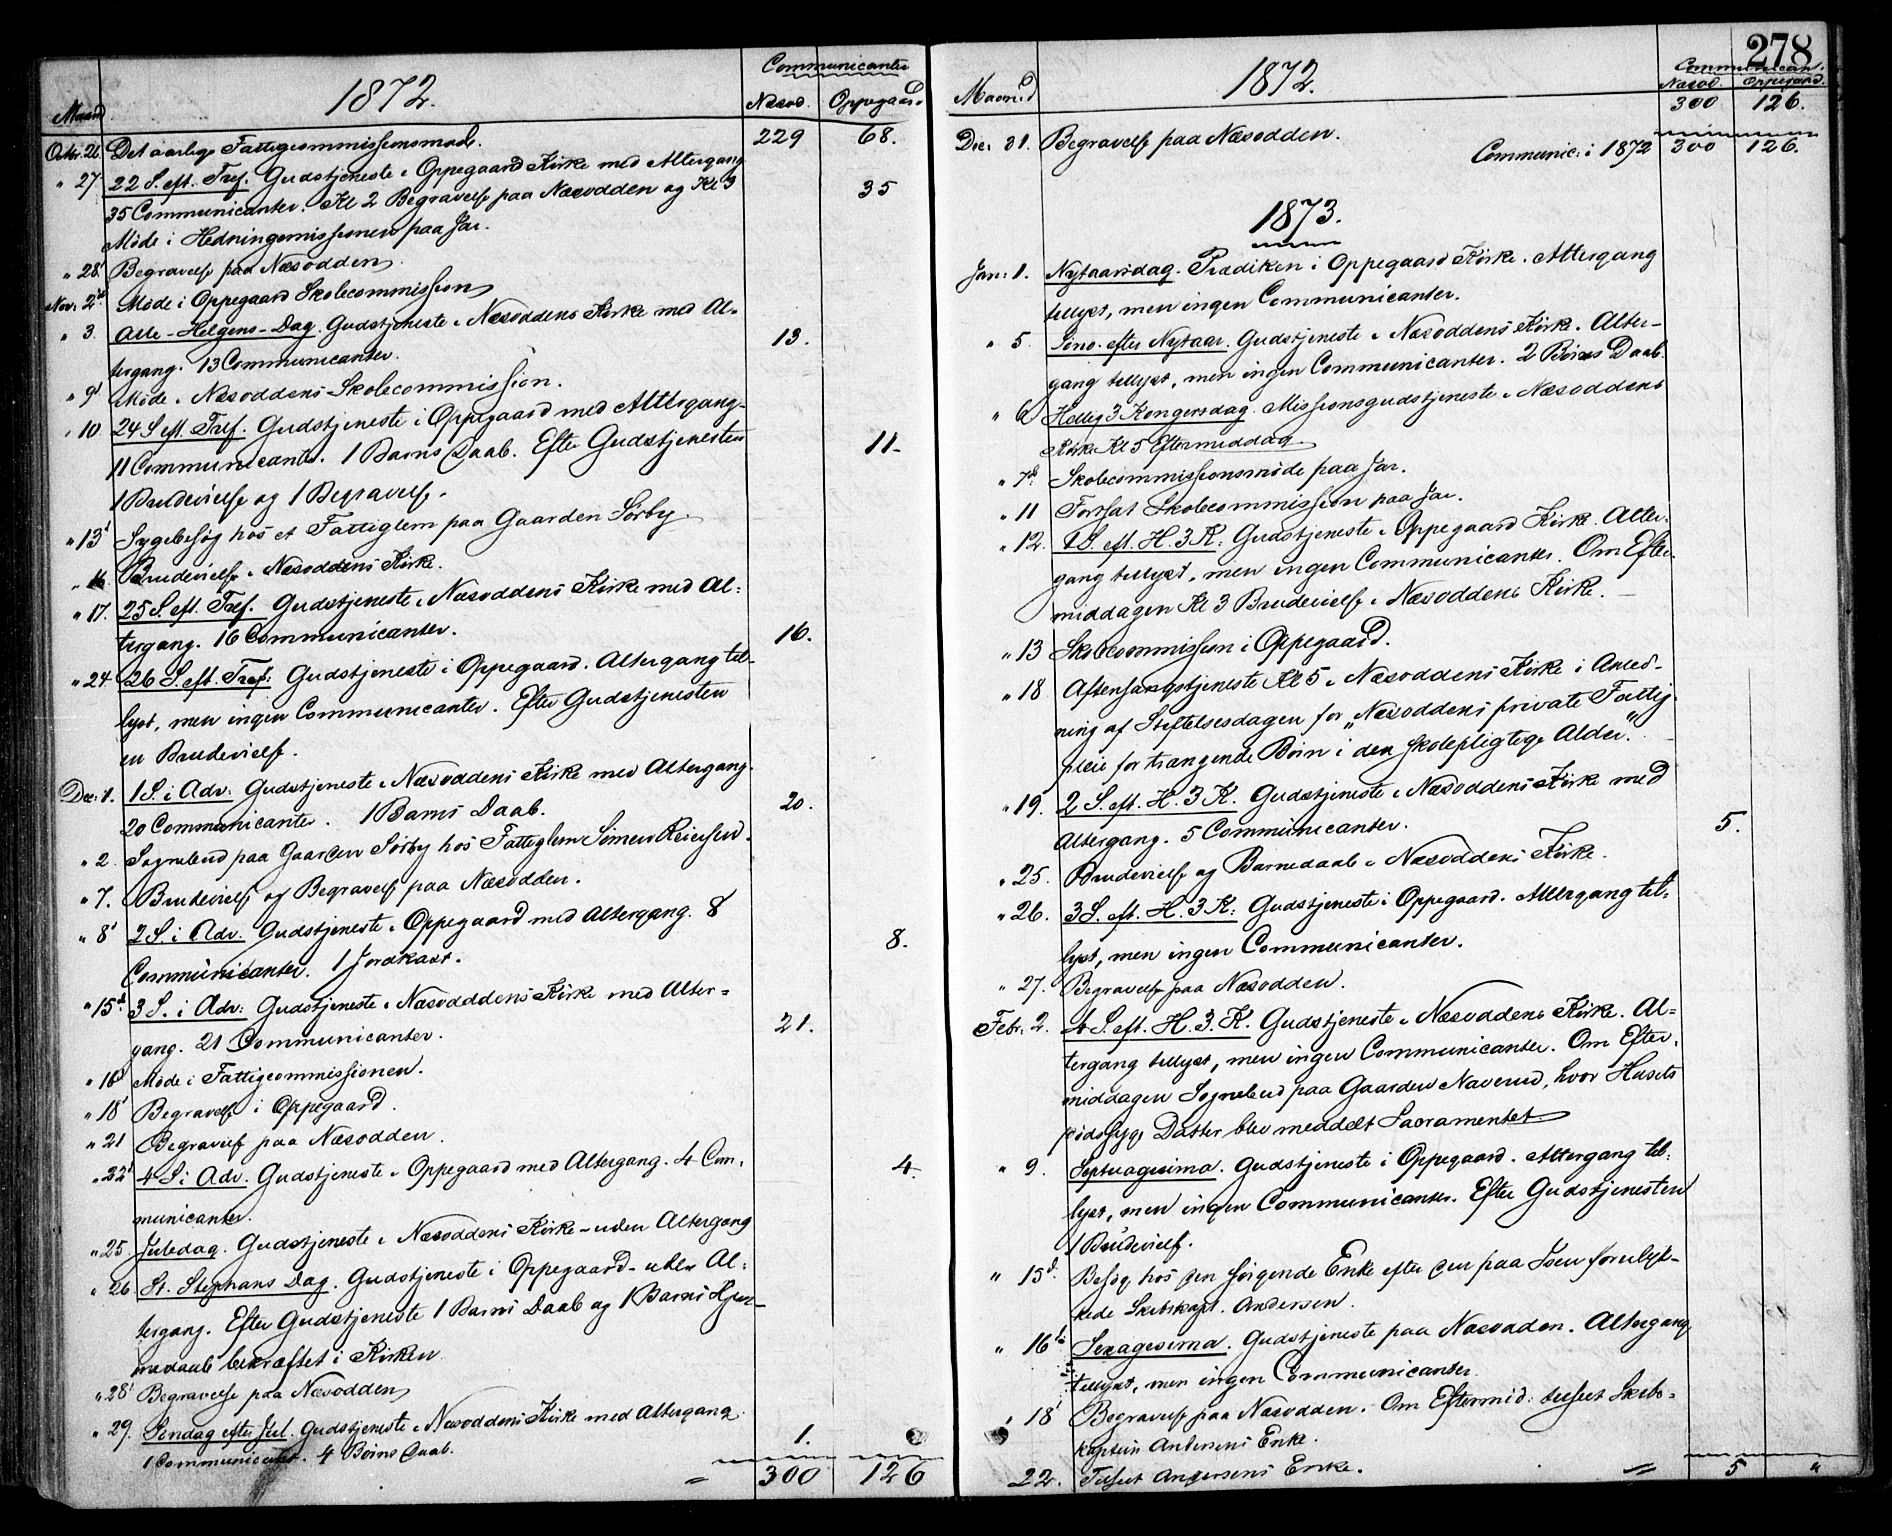 1872.
Communicanter
Maaned
Næsod.
Oppegaard.
229 68.
Octbr. 26 Det aarlige Fattigcommissionsmøde.
" 27. 22 S. eft. Tref. Gudstjeneste i Oppegaard Kirke med Altergang
35 Communicanter. Kl 2 Begravelse paa Næsodden og Kl 3 35
Møde i Hedningemissionen paa Jar.
" 28' Begravelse paa Næsodden
Nov. 2d Møde i Oppegaard Skolecommission
" 3. Alle-Helgens-Dag. Gudstjeneste i Næsoddens Kirke med Al-
tergang. 13 Communicanter. 13.
" 9' Møde i Næsoddens Skolecommission.
" 10 24 S eft. Tref. Gudstjeneste i Oppegaard med Altergang.
11 Communicanter. 1 Barns Daab. Efter Gudstjenesten 11.
1 Brudevielse og 1 Begravelse.
" 13' Sygebesøg hos et Fattiglem paa Gaarden Sørby.
" 16 Brudevielse i Næsoddens Kirke.
" 17. 25 S. eft. Tref. Gudstjeneste i Næsoddens Kirke med Al-
tergang. 16 Communicanter. 16.
" 24 26 S. eft. Tref: Gudstjeneste i Oppegaard. Altergang til-
lyst, men ingen Communicanter. Efter Gudstjenesten
en Brudevielse.
Dec: 1. 1 S. i Adv: Gudstjeneste i Næsoddens Kirke med Altergang.
20 Communicanter. 1 Barns Daab. 20.
" 2. Sognebud paa Gaarden Sørby hos Fattiglem Simen Reiersen.
" 7. Brudevielse og Begravelse paa Næsodden.
" 8' 2 S. i Adv. Gudstjeneste i Oppegaard med Altergang. 8
Communicanter. 1 Jordkast. 8.
" 15d 3 S. i Adv: Gudstjeneste i Næsodddens Kirke med Alter-
gang. 21 Communicanter. 21.
" 16d Møde i Fattigcommissionen.
" 18' Begravelse i Oppegaard.
" 21 Begravelse paa Næsodden.
" 22' 4 S. i Adv. Gudstjeneste i Oppegaard med Altergang. 4 Com- 4.
municanter.
" 25. Juledag. Gudstjeneste i Næsoddens Kirke - uden Altergang
" 26 St. Stephans Dag. Gudstjeneste i Oppegaard - uden Al-
tergang. Efter Gudstjeneste 1 Barns Daab og 1 Barns Hjem-
medaab bekræftet i Kirken
" 28' Begravelse paa Næsodden
" 29. Søndag efter Jul. Gudstjeneste i Næsoddens Kirke med Altergang.
1 Communicant. 4 Børns Daab. 1.
300 126
278
1872.
Communican.
Maaned
Næsod. Oppegaard.
300 126.
Dec. 31. Begravelse paa Næsodden.
Communic: i 1872 300 126.
1873.
Jan: 1. Nytaarsdag. Prædiken i Oppegaard Kirke. Altergang
tillyst, men ingen Communicanter.
" 5. Sønd. efter Nytaar. Gudstjeneste i Næsoddens Kirke. Alter-
gang tillyst, men ingen Communicanter. 2 Børns Daab.
" 6 Hellig 3 Kongersdag. Missionsgudstjeneste i Næsoddens
Kirke Kl 5 Eftermiddag
" 7d Skolecommissionsmøde paa Jar.
" 11 Fortsat Skolecommission paa Jar.
" 12. 1 S. eft. H. 3 K: Gudstjeneste i Oppegaard Kirke. Alter-
gang tillyst, men ingen Communicanter. Om Efter-
middagen Kl 3 Brudevielse i Næsoddens Kirke.
" 13 Skolecommission i Oppegaard.
" 18 Aftensangstjeneste Kl 5 i Næsoddens Kirke i Anled-
ning af Stiftelsesdagen for „Næsoddens private Fattig-
pleie for trængende Børn i den skolepligtige Alder."
" 19. 2 S. eft. H. 3 K. Gudstjeneste i Næsoddens Kirke med
Altergang. 5 Communicanter. 5.
" 25. Brudevielse og Barnedaab i Næsoddens Kirke.
" 26. 3 S. eft. H. 3 K: Gudstjeneste i Oppegaard. Altergang til-
lyst, men ingen Communicanter.
" 27. Begravelse paa Næsodden.
Febr. 2. 4 S. eft. H. 3. K. Gudstjeneste i Næsoddens Kirke. Al-
tergang tillyst, men ingen Communicanter. Om Efter-
middagen Sognebud paa Gaarden Naverud, hvor Husets
dødssyge Datter blev meddelt Sacramentet
" 9. Septuagesima. Gudstjeneste i Oppegaard. Altergang til-
lyst, men ingen Communicanter. Efter Gudstjenesten
1 Brudevielse.
" 15d. Besøg hos den sørgende Enke efter den paa Isen forulyk-
kede Skibskapt. Andersen.
" 16d Sexagesima. Gudstjeneste paa Næsodden. Altergang
tillyst, men ingen Communicanter.
" 18' Begravelse paa Næsodden. Om Eftermid. tilseet Skibs-
kaptein Andersens Enke.
22. Tilseet Andersens Enke.
5 "